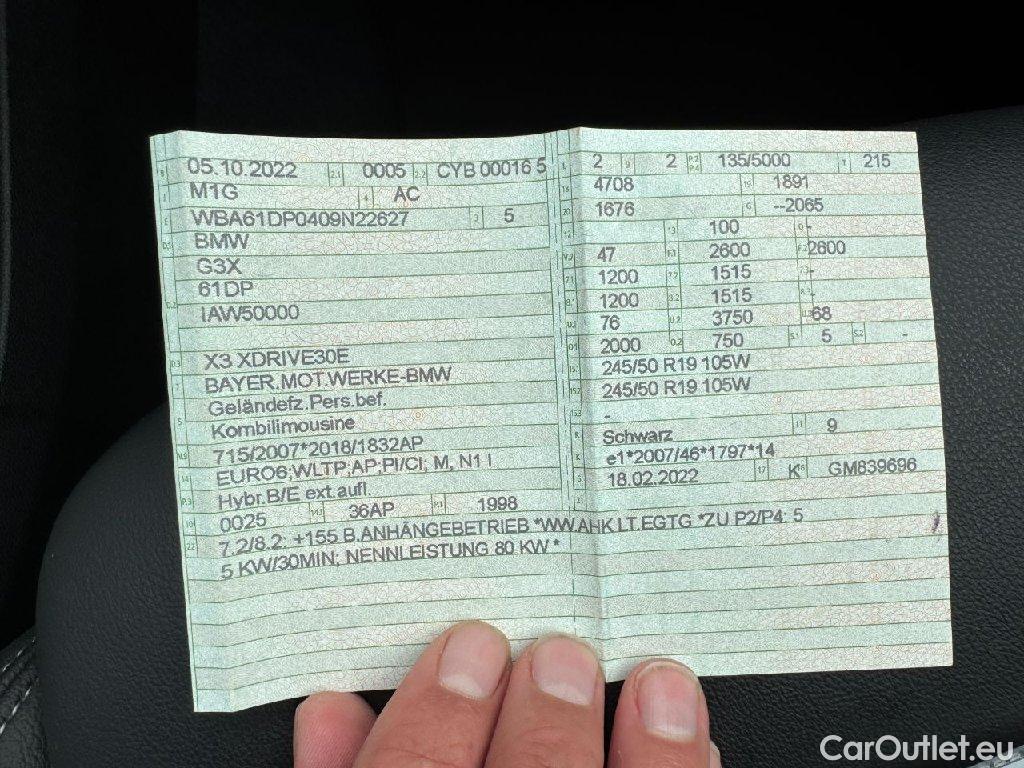 05.10.2022 0005 CYB 00016 5
M1G AC
WBA61DP0409N22627 5
BMW
G3X
61DP
IAW50000
X3 XDRIVE30E
BAYER.MOT.WERKE-BMW
Geländefz.Pers.bef.
Kombilimousine
715/2007*2018/1832AP
EURO6;WLTP;AP;PI/CI; M, N1 I
Hybr.B/E ext.aufl.
0025 36AP 1998
7.2/8.2: +155 B.ANHÄNGEBETRIEB *WW.AHK LT.EGTG *ZU P2/P4: 5
5 KW/30MIN; NENNLEISTUNG 80 KW *
2 2 135/5000 215
4708 1891
1676 --2065
100 -
47 2600 2600
1200 1515 -
1200 1515 -
76 3750 68
2000 750 5 -
245/50 R19 105W
245/50 R19 105W
-
Schwarz 9
e1*2007/46*1797*14
18.02.2022 K GM839696
CarOutlet.eu